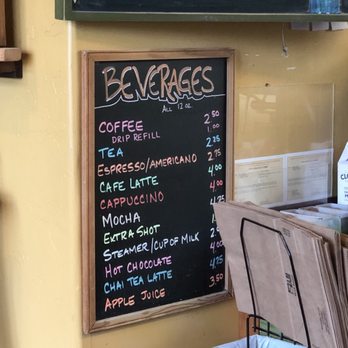 BEVERAGES
ALL 12 OZ.
COFFEE 2.50
DRIP REFILL 1.00
TEA 2.25
ESPRESSO/AMERICANO 2.75
CAFE LATTE 4.00
CAPPUCCINO 4.00
MOCHA 4.25
EXTRA SHOT
STEAMER/CUP OF MILK
HOT CHOCOLATE 4.00
CHAI TEA LATTE 4.25
APPLE JUICE 3.50